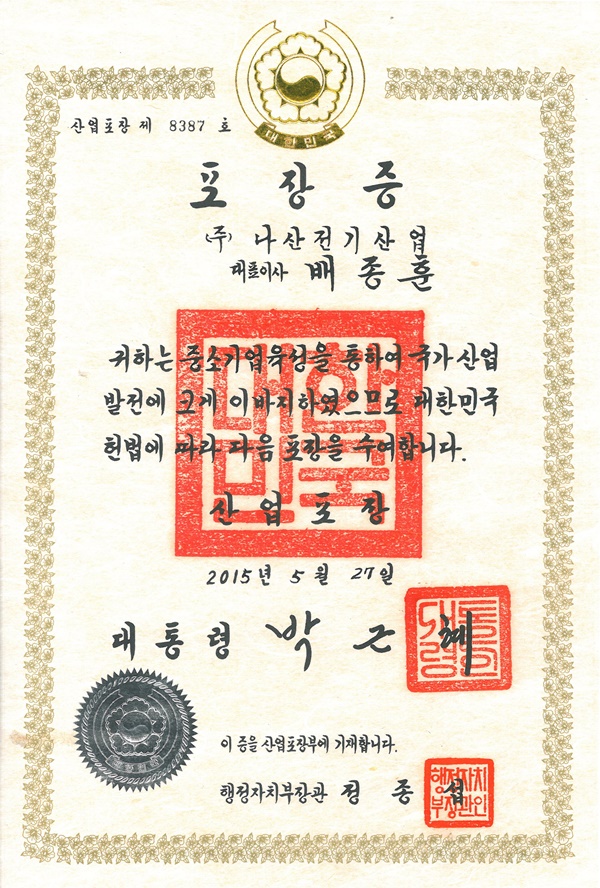 대한민국
산업포장 제 8387 호
포장증
(주) 나산전기산업
대표이사 배종훈
귀하는 중소기업육성을 통하여 국가 산업
발전에 크게 이바지하였으므로 대한민국
헌법에 따라 다음 포장을 수여합니다.
산업포장
2015년 5월 27일
대통령 박근혜
이 증을 산업포장부에 기재합니다.
행정자치부장관 정종섭
행정자치
부장관인